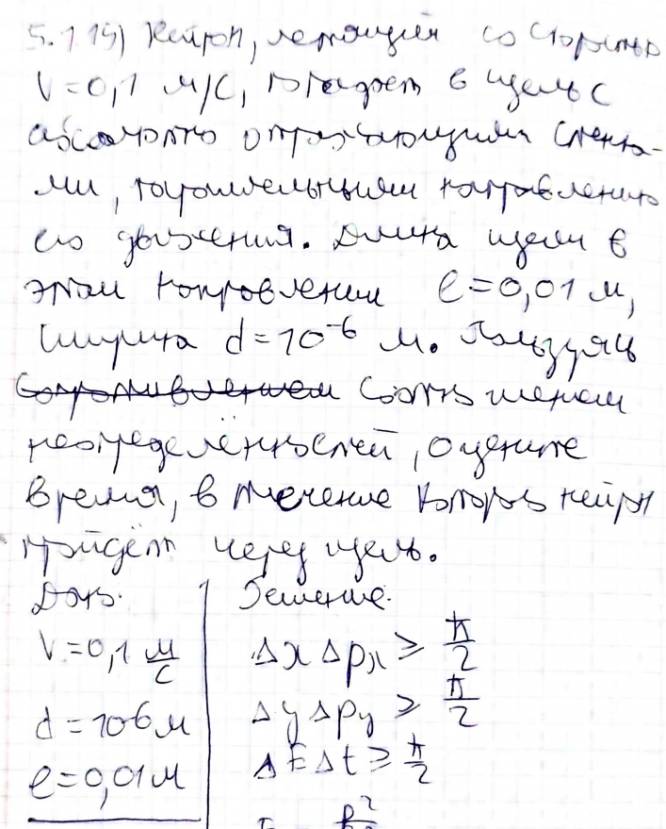 5.1.15) Нейтрон, летящий со скоростью
V=0,1 м/с, попадает в щель с
абсолютно отражающими стенка-
ми, параллельными направлению
его движения. Длина щели в
этом направлении ℓ=0,01 м,
ширина d=10⁻⁶ м. Пользуясь
соотношением
неопределённостей, оцените
время, в течение которого нейтрон
пройдёт через щель.
Дано: Решение.
V=0,1 м/с Δx Δpx ≥ ħ/2
d=10⁻⁶ м Δy Δpy ≥ ħ/2
ℓ=0,01 м ΔE Δt ≥ ħ/2